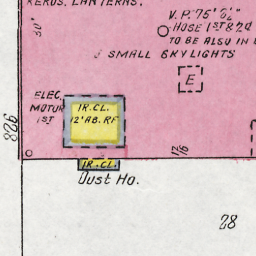 KEROS. LANTERNS.
V.P. 75' 6½"
30'
HOSE 1ST & 2D
TO BE ALSO IN
3 SMALL SKYLIGHTS
E
ELEC.
MOTOR
1ST
IR. CL.
12' AB. RF
826
IR. CL.
Dust Ho.
12/16
28